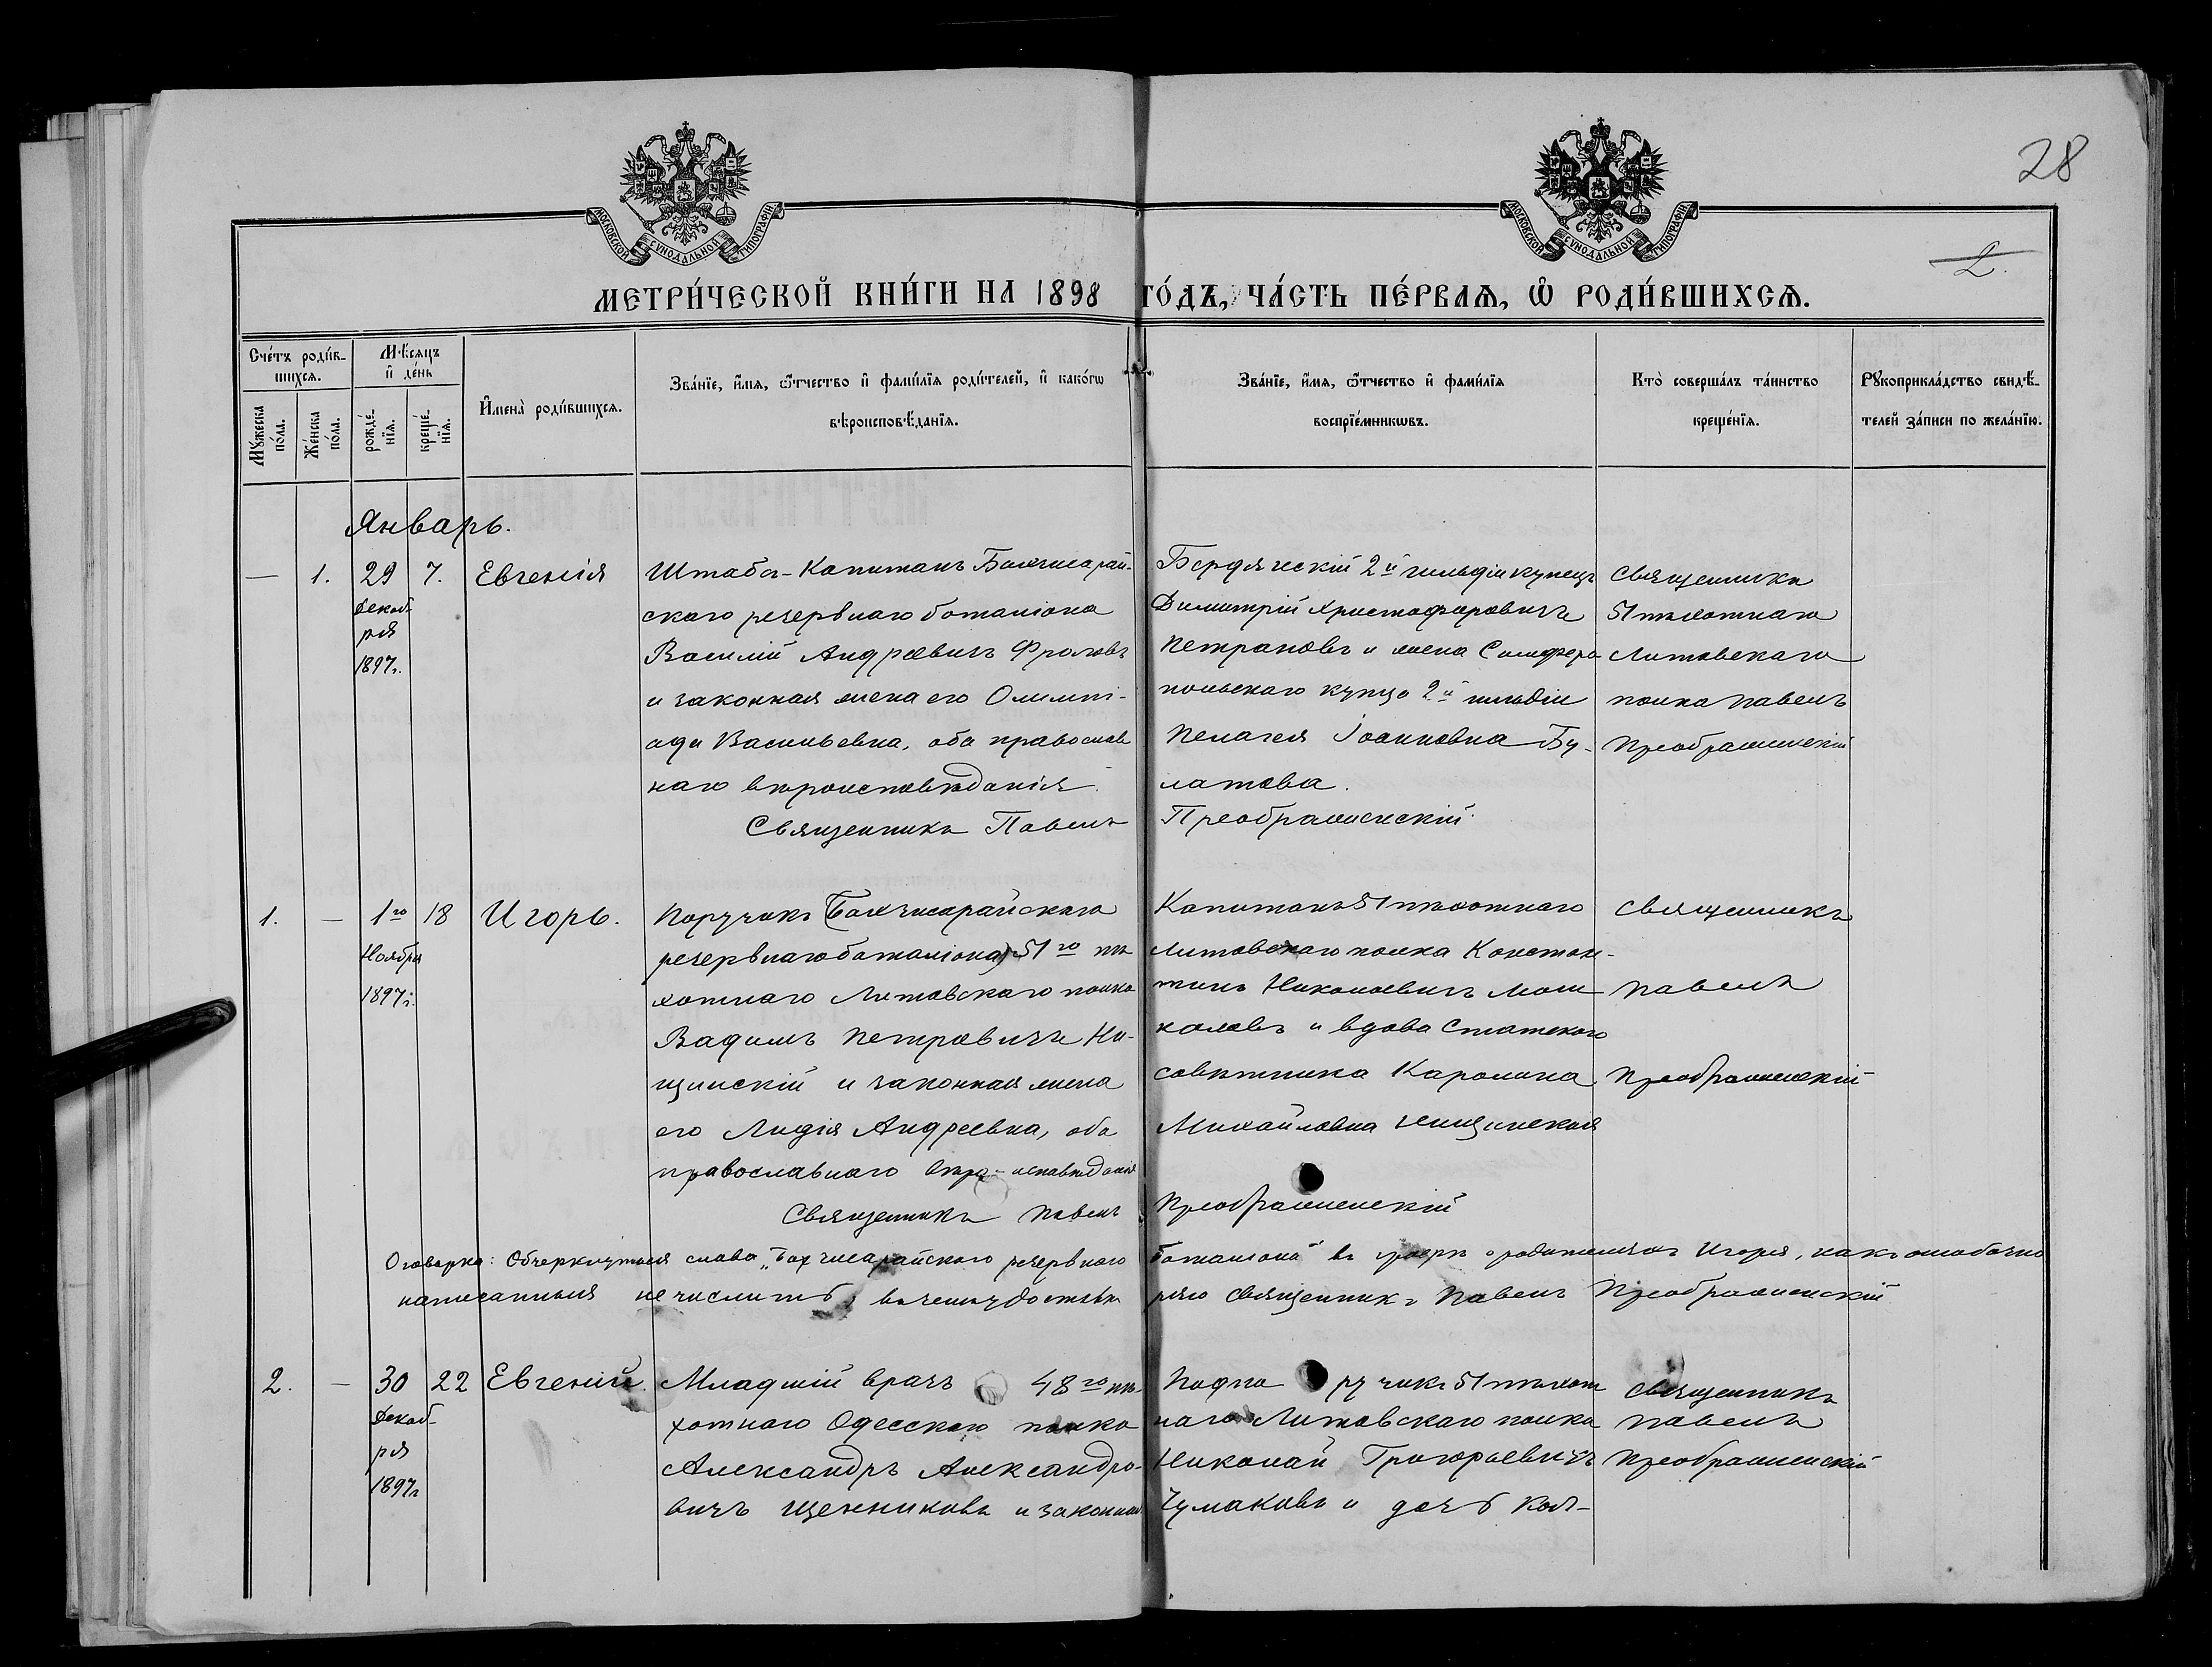 28
2.
МОСКОВСКОЙ СѴНОДАЛЬНОЙ ТИПОГРАФІИ
МОСКОВСКОЙ СѴНОДАЛЬНОЙ ТИПОГРАФІИ
МЕТРИ́ЧЕСКОЙ КНИ́ГИ НА 1898 ГО́ДЪ, ЧА́СТЬ ПЕ́РВАѦ, Ѿ РОДИ́ВШИХСѦ.
Сче́тъ роди́в-
шихсѧ.
Мꙋ́жеска по́ла.
Же́нска по́ла.
Мѣ́сѧцъ и҆ де́нь
рожде́-
нїѧ.
креще́-
нїѧ.
И҆мена̀ роди́вшихсѧ.
Зва́нїе, и҆́мѧ, ѻ҆́тчество и҆ фами́лїѧ роди́телей, и҆ како́гѡ
вѣроисповѣ́данїѧ.
Зва́нїе, и҆́мѧ, ѻ҆́тчество и҆ фами́лїѧ
воспрїе́мникѡвъ.
Кто̀ соверша́лъ та́инство
креще́нїѧ.
Рꙋкоприкла́дство свидѣ́-
телей за́писи по жела́нїю.
Январь.
— 1. 29 7. Евгенія
Декаб-
ря
1897г.
Штабсъ-Капитанъ Бахчисарай-
скаго резервнаго баталіона
Василій Андреевичъ Фроловъ
и законная жена его Олимпі-
ада Васильевна, оба православ
наго вѣроисповѣданія.
Священникъ Павелъ
Бердянскій 2й гильдіи купецъ
Димитрій Христофоровичъ
Петрановъ и жена Симферо
польскаго купца 2й гильдіи
Пелагея Іоанновна Бу-
латова.
Преображенскій
Священникъ
51 пѣхотнаго
Литовскаго
полка Павелъ
Преображенскій
1. — 1го 18 Игорь.
Ноября
1897г.
Поручикъ (Бахчисарайскаго
резервнаго баталіона) 51го пѣ
хотнаго Литовскаго полка
Вадимъ Петровичъ Ни-
щинскій и законная жена
его Лидія Андреевна, оба
православнаго вѣро-исповѣданія
Священникъ Павелъ
Капитанъ 51 пѣхотнаго
Литовскаго полка Констан-
тинъ Николаевичъ Мош
каловъ и вдова Статскаго
совѣтника Каролина
Михайловна Нищинская
Преображенскій
Священникъ
Павелъ
Преображенскій
Оговорка: Обчеркнутыя слова „Бахчисарайскаго резервнаго баталіона" въ графѣ о родителяхъ Игоря, какъ ошибочно
написанныя не числить, въ чемъ удостовѣ ряю Священникъ Павелъ Преображенскій
2. — 30 22 Евгеній.
Декаб-
ря
1897г
Младшій врачъ 48го пѣ-
хотнаго Одесскаго полка
Александръ Александро-
вичъ Щенниковъ и законная
Подпо ручикъ 51 пѣхот
наго Литовскаго полка
Николай Григорьевичъ
Чумаковъ и дочь Кол-
Священникъ
Павелъ
Преображенскій